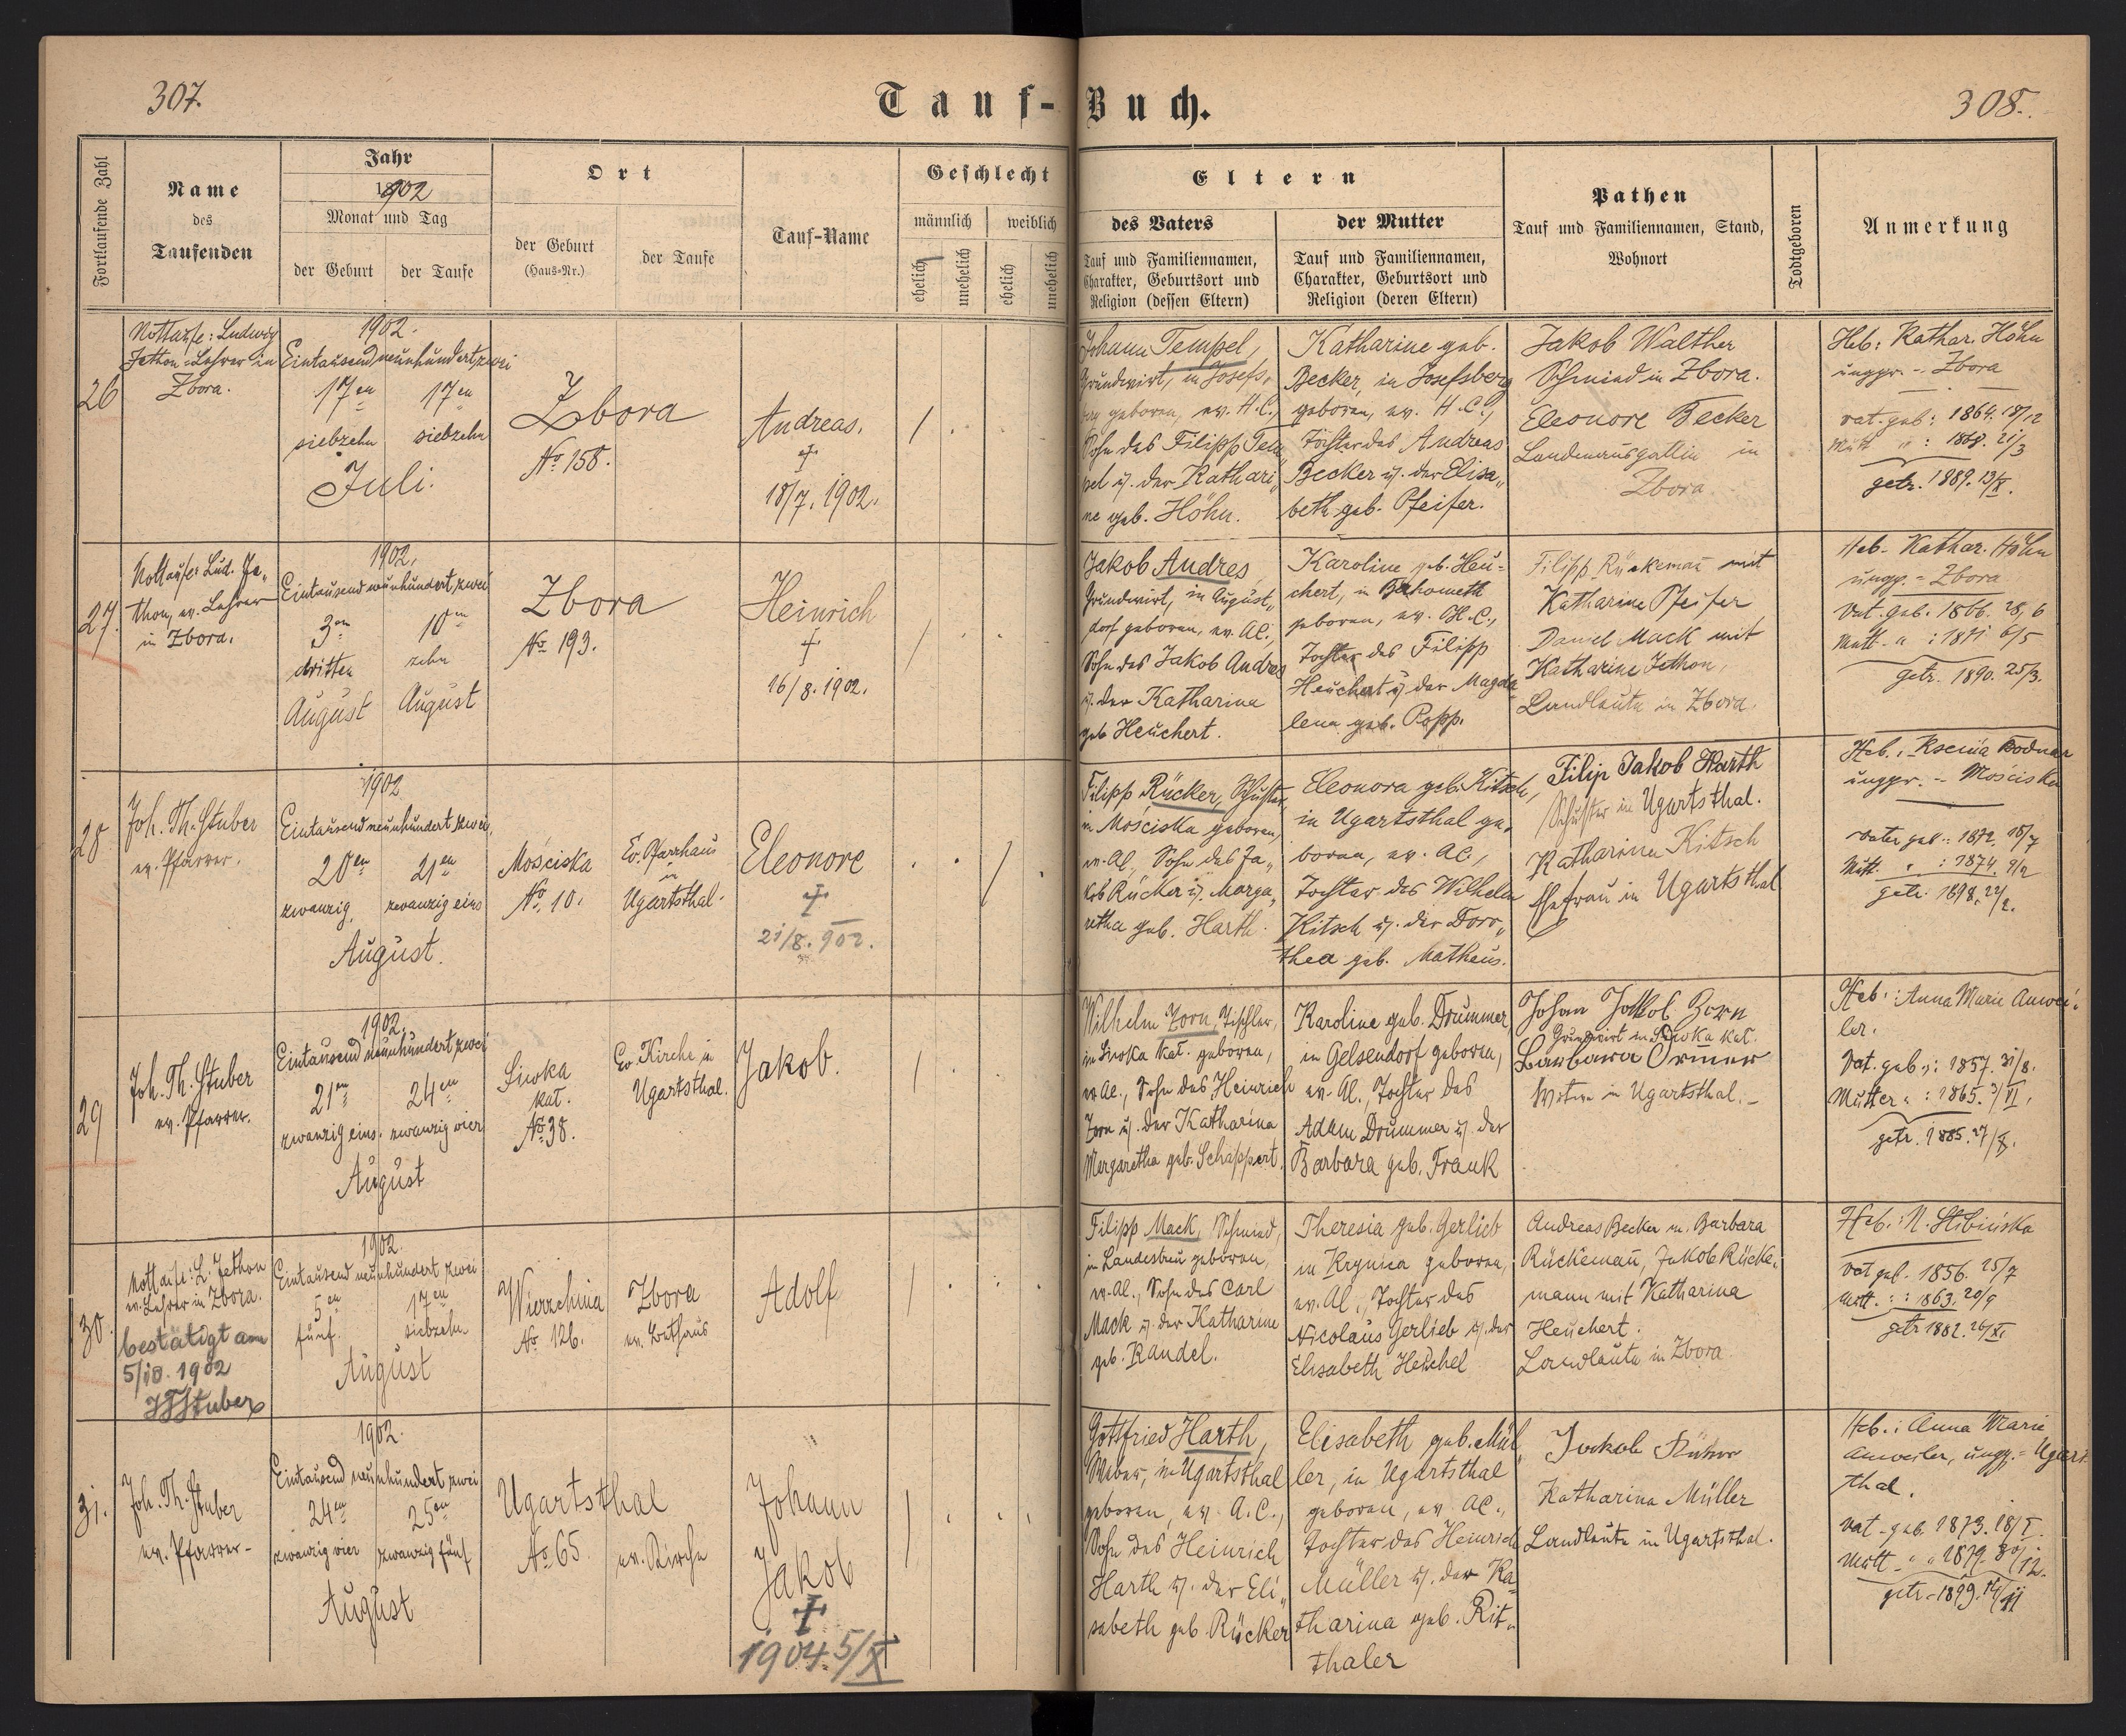 307.
Tauf-Buch.
308.
Fortlaufende Zahl
Name
des
Taufenden
Jahr
1902
Monat und Tag
der Geburt
der Taufe
Ort
der Geburt
(Haus-Nr.)
der Taufe
Tauf-Name
Geschlecht
männlich
weiblich
ehelich
unehelich
ehelich
unehelich
Eltern
des Vaters
Tauf und Familiennamen,
Charakter, Geburtsort und
Religion (dessen Eltern)
der Mutter
Tauf und Familiennamen,
Charakter, Geburtsort und
Religion (deren Eltern)
Pathen
Tauf und Familiennamen, Stand,
Wohnort
Todtgeboren
Anmerkung
26
Nottaufe: Ludwig
Jethon-Lehrer in
Zbora.
1902.
Eintausendneunhundertzwei
17en
17en
siebzehn
siebzehn
Juli.
Zbora
No 158.
Andreas.
†
18/7. 1902.
Johann Tempel,
Grundwirt, in Josefs-
berg geboren, ev. H.C.,
Sohn des Filipp Tem-
pel u. der Kathari-
ne geb. Höhn.
Katharine geb.
Becker, in Josefsberg
geboren, ev. H.C.,
Tochter des Andreas
Becker u. der Elisa-
beth geb. Pfeifer.
Jakob Walther
Schmied in Zbora.
Eleonore Becker
Landmansgattin in
Zbora.
Heb: Kathar. Höhn
ungepr. - Zbora
Vat. geb: 1864. 18/12
Mutt " : 1868. 21/3
getr. 1889. 13/X.
27.
Nottaufe: Lud. Je-
thon, ev. Lehrer
in Zbora.
1902.
Eintausendneunhundertzwei
3en
10en
dritten
zehn
August
August
Zbora
No 193.
Heinrich
†
16/8. 1902.
Jakob Andres
Grundwirt, in August-
dorf geboren, ev. AC.,
Sohn des Jakob Andres
u. der Katharina
geb Heuchert.
Karoline geb. Heu-
chert, in Bahometh
geboren, ev. H.C.,
Tochter des Filipp
Heuchert u der Magda-
lena geb. Popp.
Filipp Rückeman mit
Katharine Pfeifer
Daniel Mack mit
Katharine Jethon,
Landleute in Zbora.
Heb- Kathar. Höhn
ungp. - Zbora
Vat. geb. 1866. 28/6
Mutt. " : 1871 6/5
getr. 1890. 25/3.
28.
Joh. Th. Stuber
ev. Pfarrer.
1902
Eintausendneunhundertzwei,
20en
21en
zwanzig,
zwanzig eins
August.
Mościska
No. 10.
Ev. Pfarrhaus
in
Ugartsthal.
Eleonore
†
21/8. 902.
Filipp Rücker, Schuster,
in Mościska geboren,
ev. AC., Sohn des Ja-
kob Rücker u. Marga-
retha geb. Harth.
Eleonora geb. Kitsch,
in Ugartsthal ge-
boren, ev. AC.,
Tochter des Wilhelm
Kitsch u. der Doro-
thea geb. Matheus.
Filip Jakob Harth
Schuster in Ugartsthal.
Katharina Kitsch
Ehefrau in Ugartsthal
Heb.: Ksenia Bodnar
ungpr. - Mościska
Vater geb.: 1872. 18/7
Mutt. " : 1874. 9/2
getr. 1898. 22/2.
29
Joh. Th. Stuber
ev. Pfarrer.
1902.
Eintausendneunhundertzwei
21en
24en
zwanzig eins.
zwanzig vier
August
Siwka
kat.
No 38.
Ev. Kirche in
Ugartsthal.
Jakob.
Wilhelm Zorn, Tischler,
in Siwka Kat. geboren,
ev AC., Sohn des Heinrich
Zorn u. der Katharina
Margaretha geb. Schappert.
Karoline geb. Drummer
in Gelsendorf geboren,
ev. AC., Tochter des
Adam Drummer u. der
Barbara geb. Frank
Johan Jakob Zorn
Grundwirt in Siwka kat.
Barbara Ormer
Witwe in Ugartsthal. -
Heb.: Anna Marie Anwei-
ler.
Vat. geb.: 1857. 31/8.
Mutter " : 1865. 3/VI.
getr. 1885. 27/X.
30.
Nottaufe: L. Jethon
ev. Lehrer in Zbora.
bestätigt am
5/10. 1902
JThStuber
1902.
Eintausend neunhundert zwei
5en
17en
fünf.
siebzehn
August
Wierzchnia
No 126.
Zbora
ev. Bethaus
Adolf
Filipp Mack, Schmied,
in Landestreu geboren,
ev. AC., Sohn des Carl
Mack u. der Katharine
geb. Kandel.
Theresia geb. Gerlieb
in Krynica geboren,
ev. AC., Tochter des
Nicolaus Gerlieb u. der
Elisabeth Heuchel
Andreas Becker m. Barbara
Rückeman, Jakob Rücke-
mann mit Katharina
Heuchert.
Landleute in Zbora.
Heb.: N. Skibińska
Vat geb. 1856. 25/7
Mutt. : : 1863. 20/9
getr 1882. 26/XI.
31.
Joh. Th. Stuber
ev. Pfarrer-
1902.
Eintausend neunhundert zwei
24en
25en
zwanzig vier
zwanzig fünf
August
Ugartsthal
No 65.
ev. Kirche
Johann
Jakob
†
1904. 5/X
Gottfried Harth,
Weber, in Ugartsthal
geboren, ev. A.C.,
Sohn des Heinrich
Harth u. der Eli-
sabeth geb. Rücker
Elisabeth geb. Mül-
ler, in Ugartsthal
geboren, ev. AC.,
Tochter des Heinrich
Müller u. der Ka-
tharina geb. Rit-
thaler
Jakob
Katharina Müller
Landleute in Ugartsthal.
Heb.: Anna Marie
Anweiler, ungp. - Ugarts
thal.
Vat. geb. 1873. 18/I.
Mutt. " " 1879. 30/12.
getr. 1899. 14/11